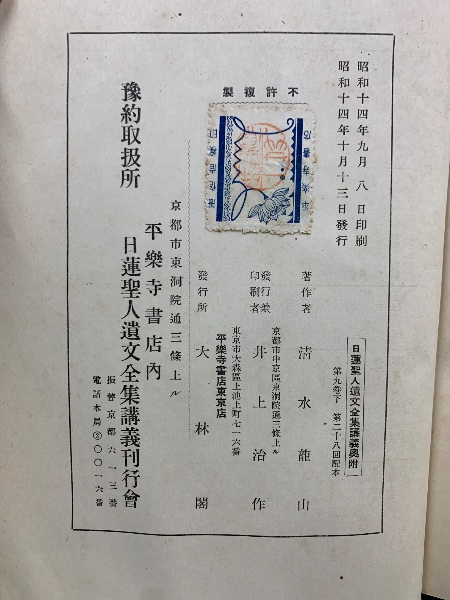 昭和十四年九月八日印刷
昭和十四年十月十三日發行
日蓮聖人遺文全集講義奧附
第九卷下 第二十八回配本
不許複製
平樂寺書店
著作者 清水龍山
京都市中京區東洞院通三條上ル
發行兼印刷者 井上治作
東京市大森區上池上町七一六番
平樂寺書店東京店
發行所 大林閣
京都市東洞院通三條上ル
平樂寺書店內
豫約取扱所 日蓮聖人遺文全集講義刊行會
振替京都六一三番
電話本局②〇〇一六番